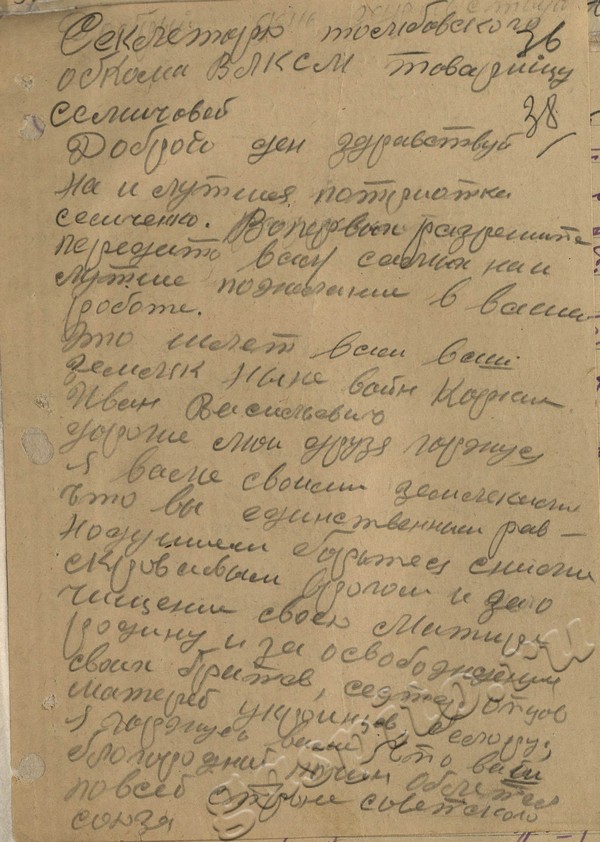 Секлетарю томбовского
36
обкома ВЛКСМ товарищу
семичовой
38
Доброй ден здравствуй
на и лутшея потриотка
семиченко. Вопервых разрешите
передать вам самых наи
лутшие пожелание в вашей
работе.
Это шлет вам ваш
земляк Ныне воин
Иван Васильевич
дорогие мои друзя горжус
я вами своими земляками
Что вы единственным рав-
нодушием
скровавым врагом и
своей Матири
родину и за освобождения
своих братев, сестер, отцов
матерей украинцев и белорус,
я горжусь вами Что ваш
благородний почин облетел
повсей стране советского
союза